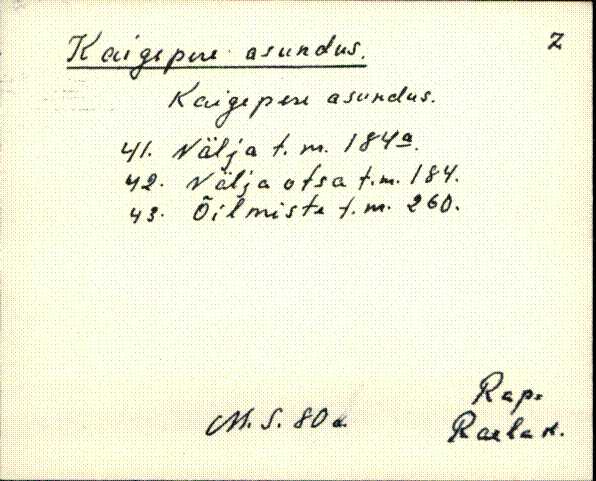 Kaigepere asundus. Z
Kaigepere asundus.
41. Välja t. m. 184a.
42. Välja otsa t.m. 184.
43. Õilmiste t. m. 260.
M. S. 80 a.
Rap.
Raela k.